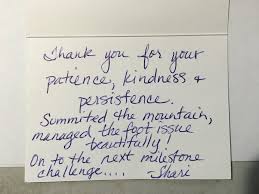 Thank you for your
patience, kindness &
persistence.
Summited the mountain,
managed the foot issue
beautifully!
On to the next milestone
challenge.... Shari